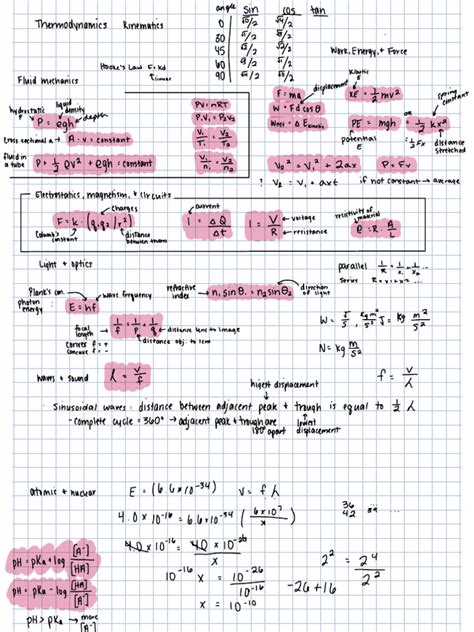 angle sin cos tan
Thermodynamics Kinematics
0 √0/2 √4/2
30 √1/2 √3/2
45 √2/2 √2/2
60 √3/2 √1/2
90 √4/2 √0/2
Work, Energy, + Force
Hooke's Law F=kd
linear
Fluid mechanics
hydrostatic
liquid density
depth
P = ρgh
Cross sectional a → A · v = constant
fluid in a tube
P + ½ρv² + ρgh = constant
PV = nRT
P₁V₁ = P₂V₂
V₁/T₁ = V₂/T₂
V₁/n₁ = V₂/n₂
F = ma
displacement
W = Fd cosθ
Wnet = Δ Ekinetic
kinetic
KE = ½mv²
PE = mgh or = ½kx²
potential energy
= ½Fx
spring constant
distance stretched
V₀² = V₁² + 2ax
P = Fv
? V₂ = V₁ + axt if not constant → average
Electrostatics, magnetism, + circuits
charges
F = k · (q₁q₂/r²)
Coulomb's constant
distance between them
current
I = ΔQ/Δt
I = V/R
voltage
resistance
resistivity of material
ρ = R · A/L
Light + optics
parallel 1/R = 1/R₁ + 1/R₂ ...
series R = R₁ + R₂ ...
Plank's con.
photon energy:
E = hf
wave frequency
refractive index
n₁ sinθ₁ = n₂ sinθ₂
direction of light
focal length
1/f = 1/p + 1/q
distance lens to image
distance obj. to lens
convex f = +
concave f = -
W = J/s, kg m²/s² J = kg m²/s²
N = kg m/s²
waves + sound λ = v/f
f = v/λ
highest displacement
· Sinusoidal waves: distance between adjacent peak + trough is equal to ½ λ
- complete cycle = 360° → adjacent peak + trough are 180° apart
lowest displacement
atomic + nuclear E = (6.6×10⁻³⁴) v = fλ
4.0×10⁻¹⁶ = 6.6×10⁻³⁴ (
36
42
pH = pKa + log [A⁻]/[HA]
pH = pKa - log [HA]/[A⁻]
pH > pKa → more [A⁻]
10⁻¹⁶ x = 10⁻²⁶/10⁻¹⁶
x = 10⁻¹⁰
-26+16
2² = 2⁴/2²